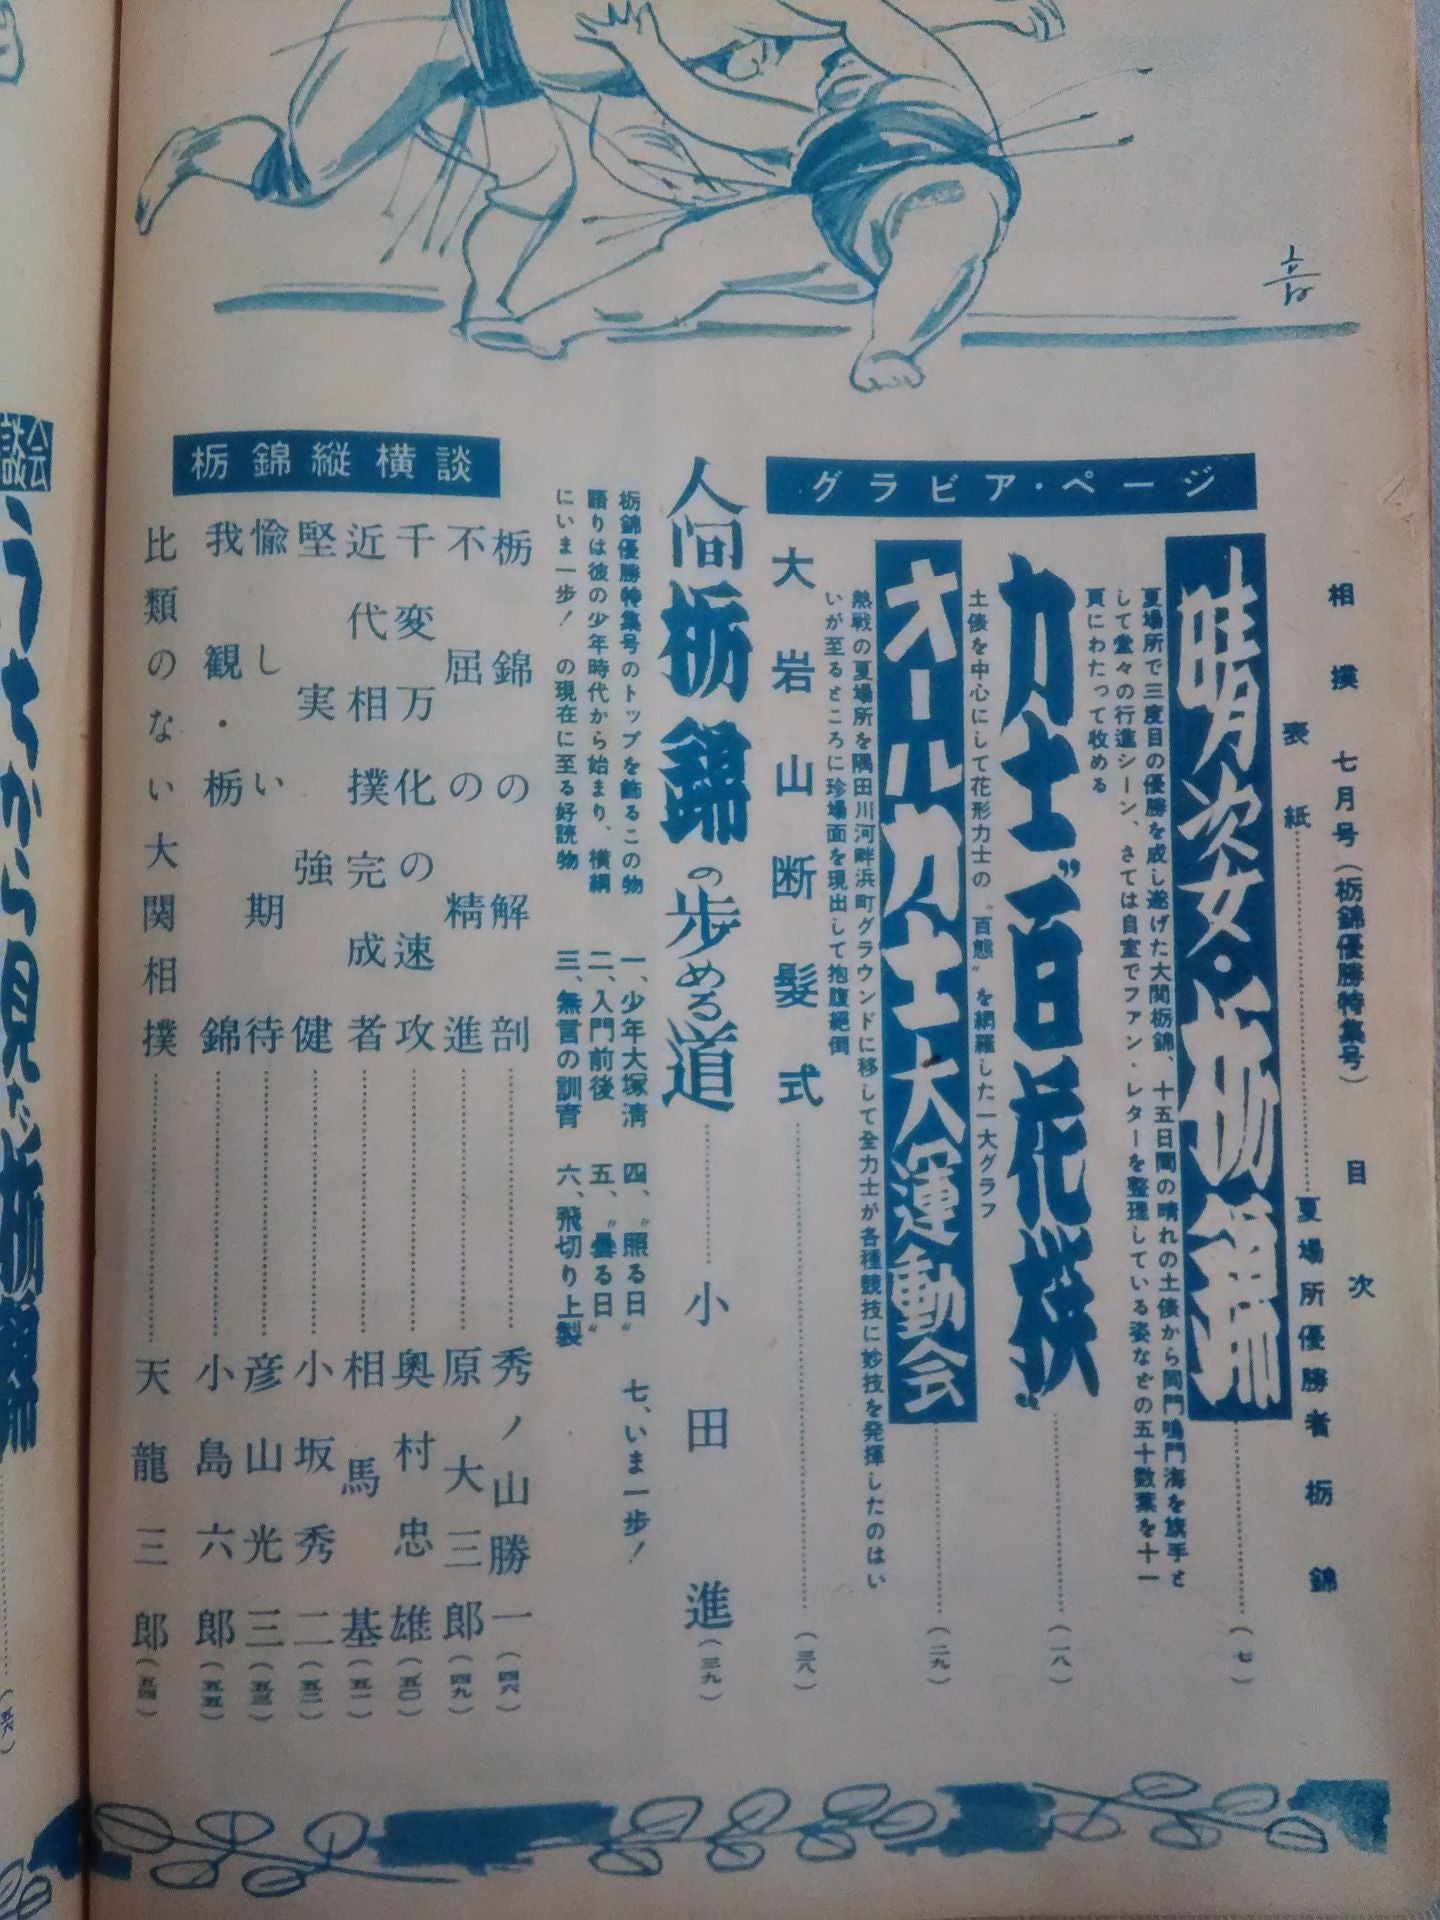 相撲 七月号(栃錦優勝特集号) 目次
表紙……夏場所優勝者栃錦
グラビア・ページ
晴れ姿・栃錦……(七)
夏場所で三度目の優勝を成し遂げた大関栃錦、十五日間の晴れの土俵から同門鳴門海を旗手と
して堂々の行進シーン、さては自室でファン・レターを整理している姿などの五十数葉を十一
頁にわたって収める
力士“百花撰”……(一八)
土俵を中心にして花形力士の“百態”を網羅した一大グラフ
オール力士大運動会……(二九)
熱戦の夏場所を隅田川河畔浜町グラウンドに移して全力士が各種競技に妙技を発揮したのはい
いが至るところに珍場面を現出して抱腹絶倒
大岩山断髪式……(三八)
人間栃錦の歩める道……小田進(三九)
栃錦優勝特集号のトップを飾るこの物
語りは彼の少年時代から始まり、横綱
にいま一歩!の現在に至る好読物
一、少年大塚清
二、入門前後
三、無言の訓育
四、“照る日”
五、“曇る日”
六、飛切り上製
七、いま一歩!
栃錦縦横談
栃錦の解剖……秀ノ山勝一(四六)
不屈の精進……原大三郎(四九)
千変万化の速攻……奥村忠雄(五〇)
近代相撲完成者……相馬基(五一)
堅実強健……小坂秀二(五二)
愉しい期待……彦山光三(五三)
我観・栃錦……小島六郎(五五)
比類のない大関相撲……天龍三郎(五四)
談会
うちから見た栃錦